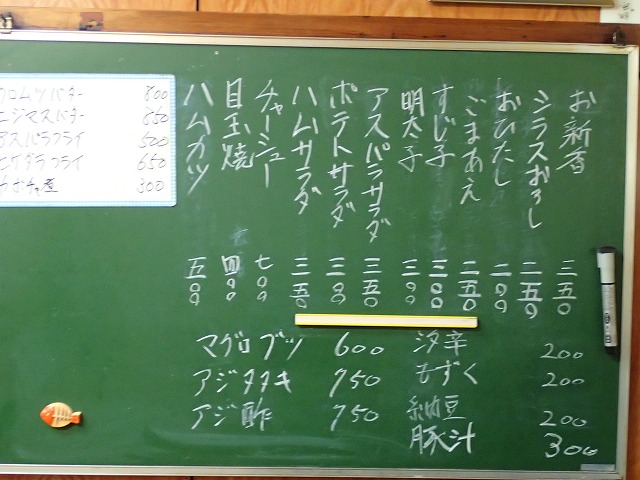 お新香 三五〇
シラスおろし 二五〇
おひたし 二〇〇
ごまあえ 二五〇
すじ子 三〇〇
明太子 三〇〇
アスパラサラダ 三五〇
ポテトサラダ 三〇〇
ハムサラダ 三五〇
チャーシュー 七〇〇
目玉焼 四〇〇
ハムカツ 五〇〇
クロムツバター 800
ニジマスバター
アスパラフライ 500
ヒゲダラフライ 650
かぼちゃ煮 300
マグロブツ 600
アジタタキ 750
アジ酢 750
汐辛 200
もずく 200
納豆 200
豚汁 300